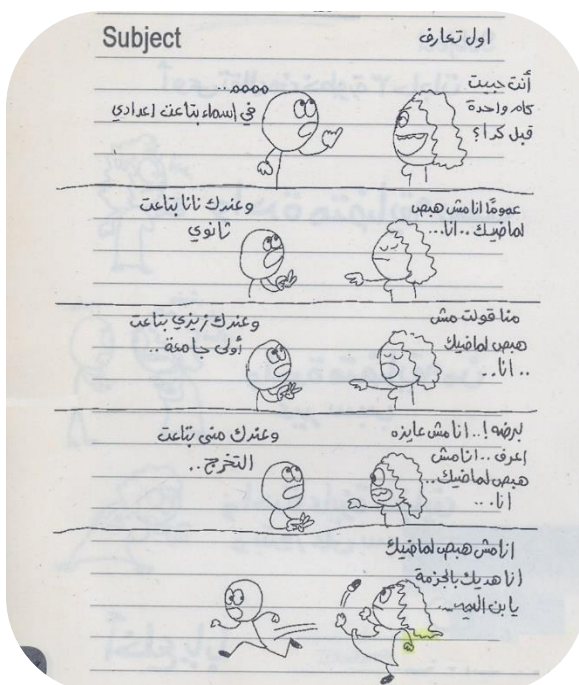 Subject
اول تعارف
أنت حبيت
كام واحدة
قبل كدا؟
مممم..
في اسماء بتاعت اعدادي
عمومًا انا مش هبص
لماضيك .. انا...
وعندك نانا بتاعت
ثانوي
منا قولت مش
هبص لماضيك
.. انا..
وعندك زيزي بتاعت
أولى جامعة ..
برضه!.. انا مش عايزه
اعرف .. انا مش
هبص لماضيك..
انا...
وعندك منى بتاعت
التخرج..
انا مش هبص لماضيك
انا هديك بالجزمة
يا ابن